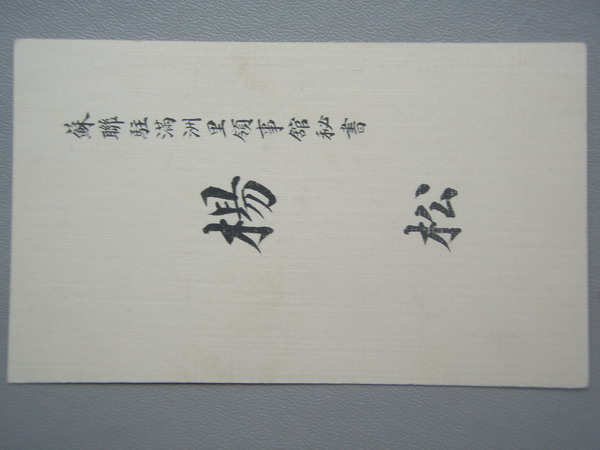 蘇聯駐滿洲里領事館秘書
楊松